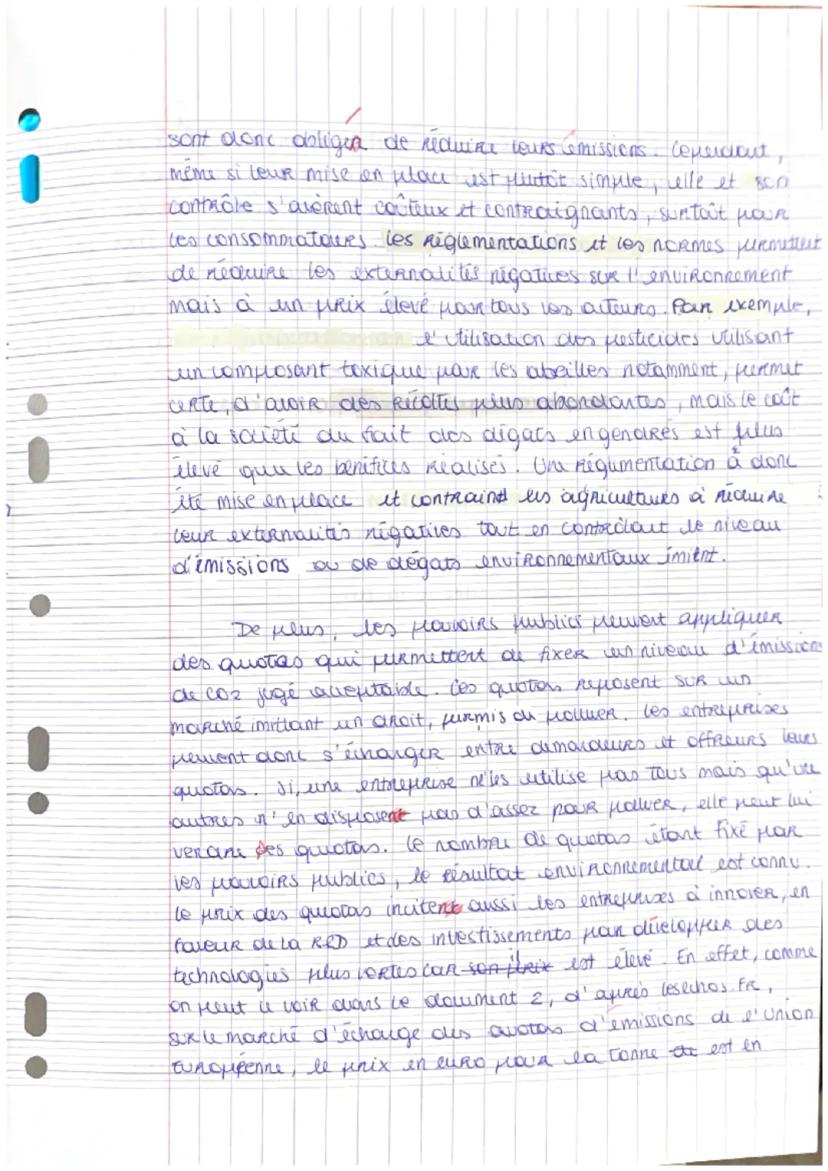 sont donc obligés de réduire leurs émissions. Cependant,
même si leur mise en place est plutôt simple, elle et son
contrôle s'avèrent coûteux et contraignants, surtout pour
les consommateurs. Les réglementations et les normes permettent
de réduire les externalités négatives sur l'environnement
mais à un prix élevé pour tous les acteurs. Par exemple,
l'utilisation des pesticides utilisant
un composant toxique pour les abeilles notamment, permet
certe, d'avoir des récoltes plus abondantes, mais le coût
à la société du fait des dégats engendrés est plus
élevé que les bénéfices réalisés. Une réglementation à donc
été mise en place et contraind les agriculteurs à réduire
leur externalités négatives tout en contrôlant le niveau
d'émissions ou de dégats environnementaux émient.
De plus, les pouvoirs publics peuvent appliquer
des quotas qui permettent de fixer un niveau d'émission
de CO2 jugé acceptable. Ces quotas reposent sur un
marché imittant un droit, permis de polluer. Les entreprises
peuvent donc s'échanger entre demandeurs et offreurs leurs
quotas. Si, une entreprise ne les utilise pas tous mais qu'une
autres n'en disposent pas d'assez pour polluer, elle peut lui
vendre ses quotas. Le nombre de quotas étant fixé par
les pouvoirs publics, le résultat environnemental est connu.
Le prix des quotas incitent aussi les entreprises à innover, en
faveur de la R&D et des investissements pour développer des
technologies plus vertes car son prix est élevé. En effet, comme
on peut le voir dans le document 2, d'après lesechos.fr,
sur le marché d'échange des quotas d'émissions de l'Union
Européenne, le prix en euro pour la tonne est en